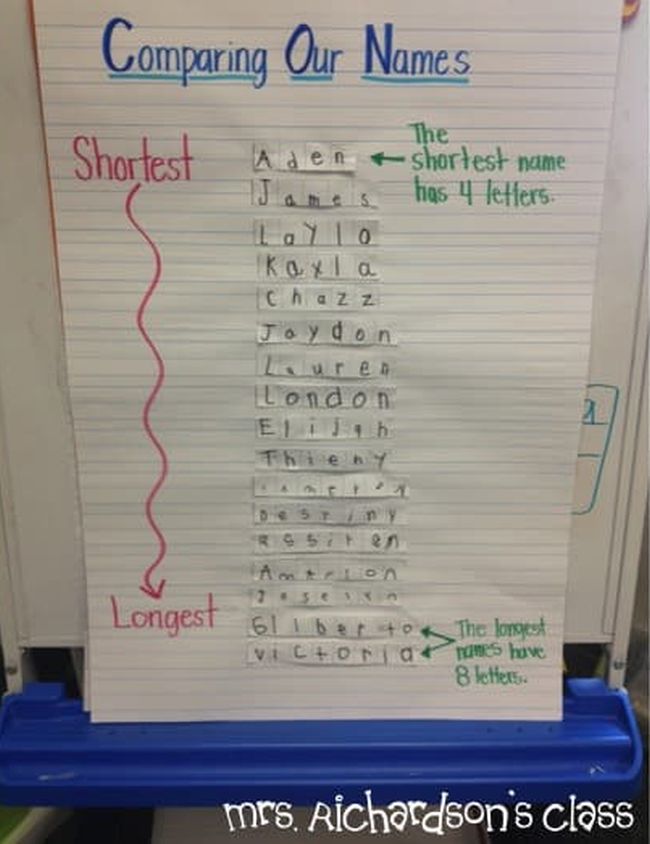 Comparing Our Names
Shortest
The
shortest name
has 4 letters.
Aden
James
Layla
Kayla
Chazz
Jaydon
Lauren
London
Elijah
Thieny
Destiny
Longest
Gilberto
victoria
The longest
names have
8 letters.
mrs. Richardson's class